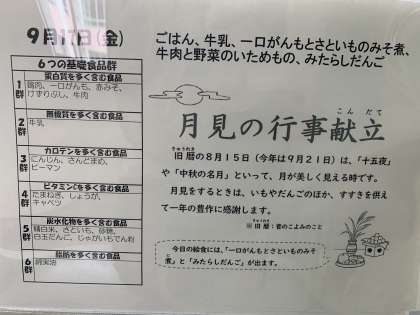 9月17日(金)
ごはん、牛乳、一口がんもとさといものみそ煮、
牛肉と野菜のいためもの、みたらしだんご
6つの基礎食品群
1群
蛋白質を多く含む食品
鶏肉、一口がんも、赤みそ、
けずりぶし、牛肉
2群
無機質を多く含む食品
牛乳
3群
カロテンを多く含む食品
にんじん、さんとまめ、
ピーマン
4群
ビタミンCを多く含む食品
たまねぎ、しょうが、
キャベツ
5群
炭水化物を多く含む食品
精白米、さといも、砂糖、
白玉だんご、じゃがいもでん粉
6群
脂肪を多く含む食品
綿実油
こんだて
月見の行事献立
きゅうれき
旧暦の8月15日(今年は9月21日)は、「十五夜」
や「中秋の名月」といって、月が美しく見える時です。
月見をするときは、いもやだんごのほか、すすきを供え
て一年の豊作に感謝します。
※旧暦:昔のこよみのこと
今日の給食には、「一口がんもとさといものみそ
煮」と「みたらしだんご」が出ます。